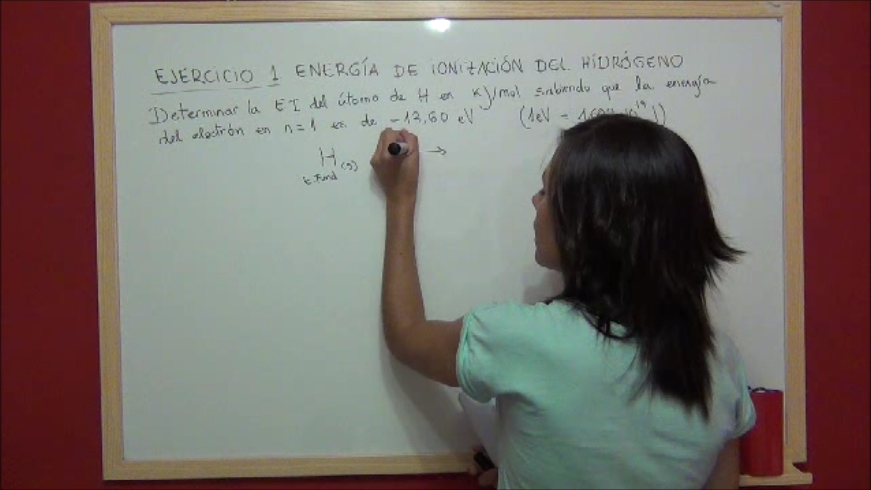 EJERCICIO 1 ENERGÍA DE IONIZACIÓN DEL HIDRÓGENO
Determinar la EI del átomo de H en KJ/mol sabiendo que la energía
del electrón en n=1 es de -13,60 eV (1eV =
H (g) →
E. Fund